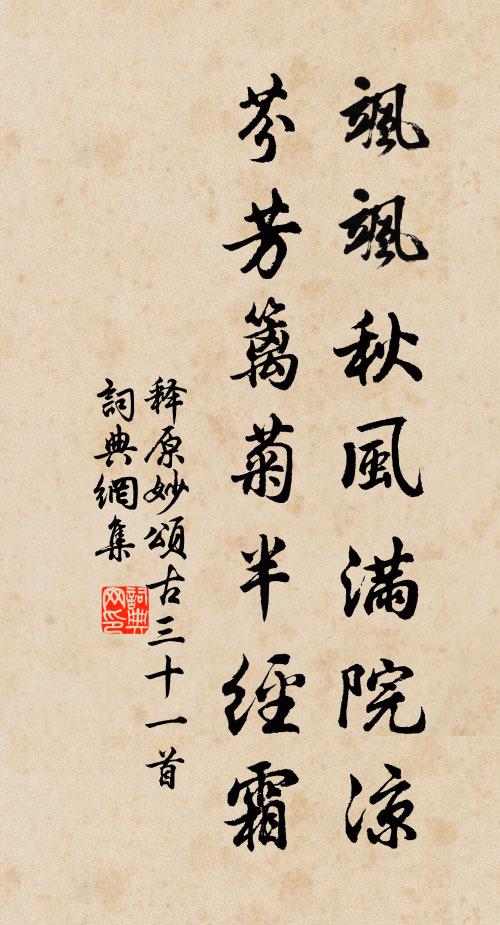 颯颯秋風滿院涼
芬芳籬菊半經霜
释原妙頌古三十一首
詞典網集
詞典网印